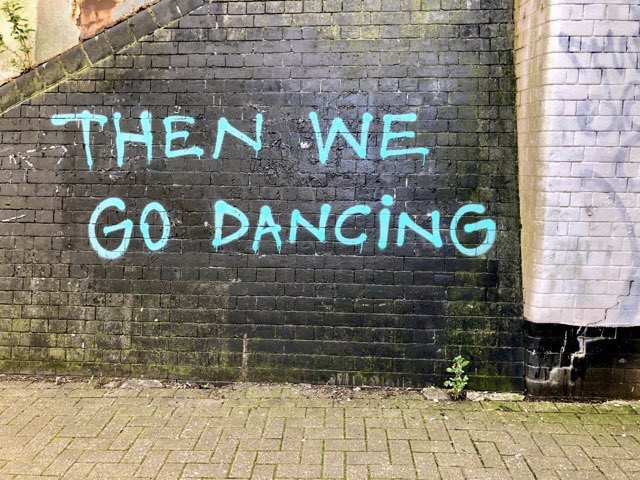 THEN WE
GO DANCiNG